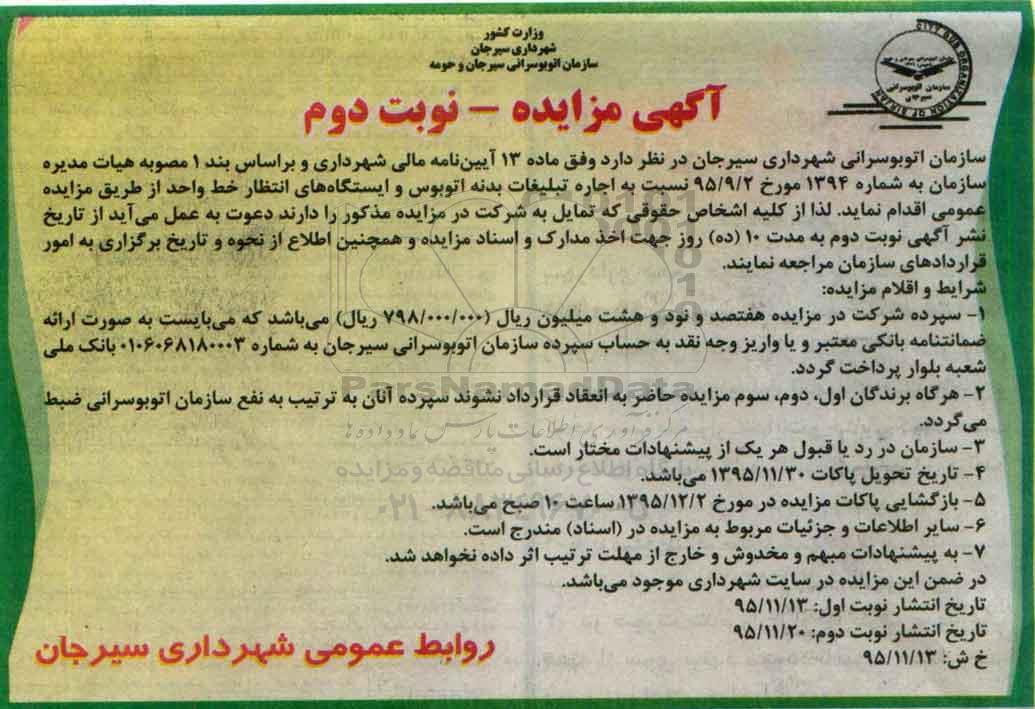 وزارت کشور
شهرداری سیرجان
سازمان اتوبوسرانی سیرجان و حومه
CITY BUS ORGANIZATION OF SIRJAN
سازمان اتوبوسرانی
سیرجان
آگهی مزایده – نوبت دوم
سازمان اتوبوسرانی شهرداری سیرجان در نظر دارد وفق ماده ۱۳ آیین‌نامه مالی شهرداری و براساس بند ۱ مصوبه هیات مدیره
سازمان به شماره ۱۳۹۴ مورخ ۹۵/۹/۲ نسبت به اجاره تبلیغات بدنه اتوبوس و ایستگاه‌های انتظار خط واحد از طریق مزایده
عمومی اقدام نماید. لذا از کلیه اشخاص حقوقی که تمایل به شرکت در مزایده مذکور را دارند دعوت به عمل می‌آید از تاریخ
نشر آگهی نوبت دوم به مدت ۱۰ (ده) روز جهت اخذ مدارک و اسناد مزایده و همچنین اطلاع از نحوه و تاریخ برگزاری به امور
قراردادهای سازمان مراجعه نمایند.
شرایط و اقلام مزایده:
۱- سپرده شرکت در مزایده هفتصد و نود و هشت میلیون ریال (۷۹۸/۰۰۰/۰۰۰ ریال) می‌باشد که می‌بایست به صورت ارائه
ضمانتنامه بانکی معتبر و یا واریز وجه نقد به حساب سپرده سازمان اتوبوسرانی سیرجان به شماره ۰۱۰۶۰۶۸۱۸۰۰۰۳ بانک ملی
شعبه بلوار پرداخت گردد.
ParsNamadData
۲- هرگاه برندگان اول، دوم، سوم مزایده حاضر به انعقاد قرارداد نشوند سپرده آنان به ترتیب به نفع سازمان اتوبوسرانی ضبط
می‌گردد.
مرکز فرآوری اطلاعات پارس نماد داده ها
۳- سازمان در رد یا قبول هر یک از پیشنهادات مختار است.
پایگاه اطلاع رسانی مناقصه و مزایده
۴- تاریخ تحویل پاکات ۱۳۹۵/۱۱/۳۰ می‌باشد.
۵- بازگشایی پاکات مزایده در مورخ ۱۳۹۵/۱۲/۲ ساعت ۱۰ صبح می‌باشد.
۶- سایر اطلاعات و جزئیات مربوط به مزایده در (اسناد) مندرج است.
۷- به پیشنهادات مبهم و مخدوش و خارج از مهلت ترتیب اثر داده نخواهد شد.
در ضمن این مزایده در سایت شهرداری موجود می‌باشد.
تاریخ انتشار نوبت اول: ۹۵/۱۱/۱۳
تاریخ انتشار نوبت دوم: ۹۵/۱۱/۲۰
خ ش: ۹۵/۱۱/۱۳
روابط عمومی شهرداری سیرجان